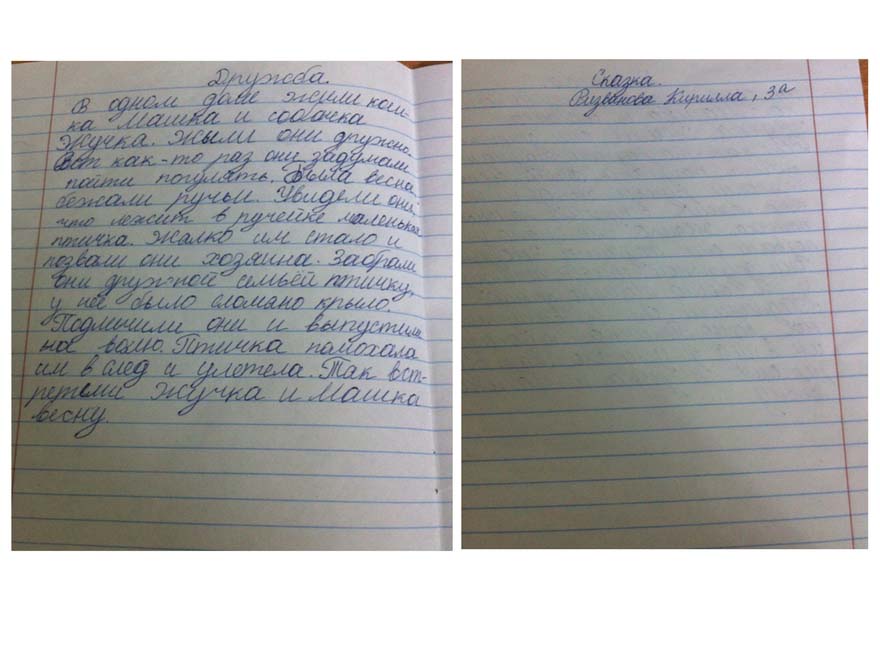 Дружба.
В одном доме жили кош-
ка Машка и собачка
Жучка. Жыли они дружно.
Вот как-то раз они задумали
пойти погулять. Была весна
бежали ручьи. Увидели они,
что лежит в ручейке маленькая
птичка. Жалко им стало и
позвали они хозяина. Забрали
они дружной семьёй птичку,
у неё было сломано крыло.
Подличили они и выпустили
на волю. Птичка памохала
им в след и улетела. Так вст-
ретели Жучка и Машка
весну.
Сказка.
Ризванова Кирилла, 3а